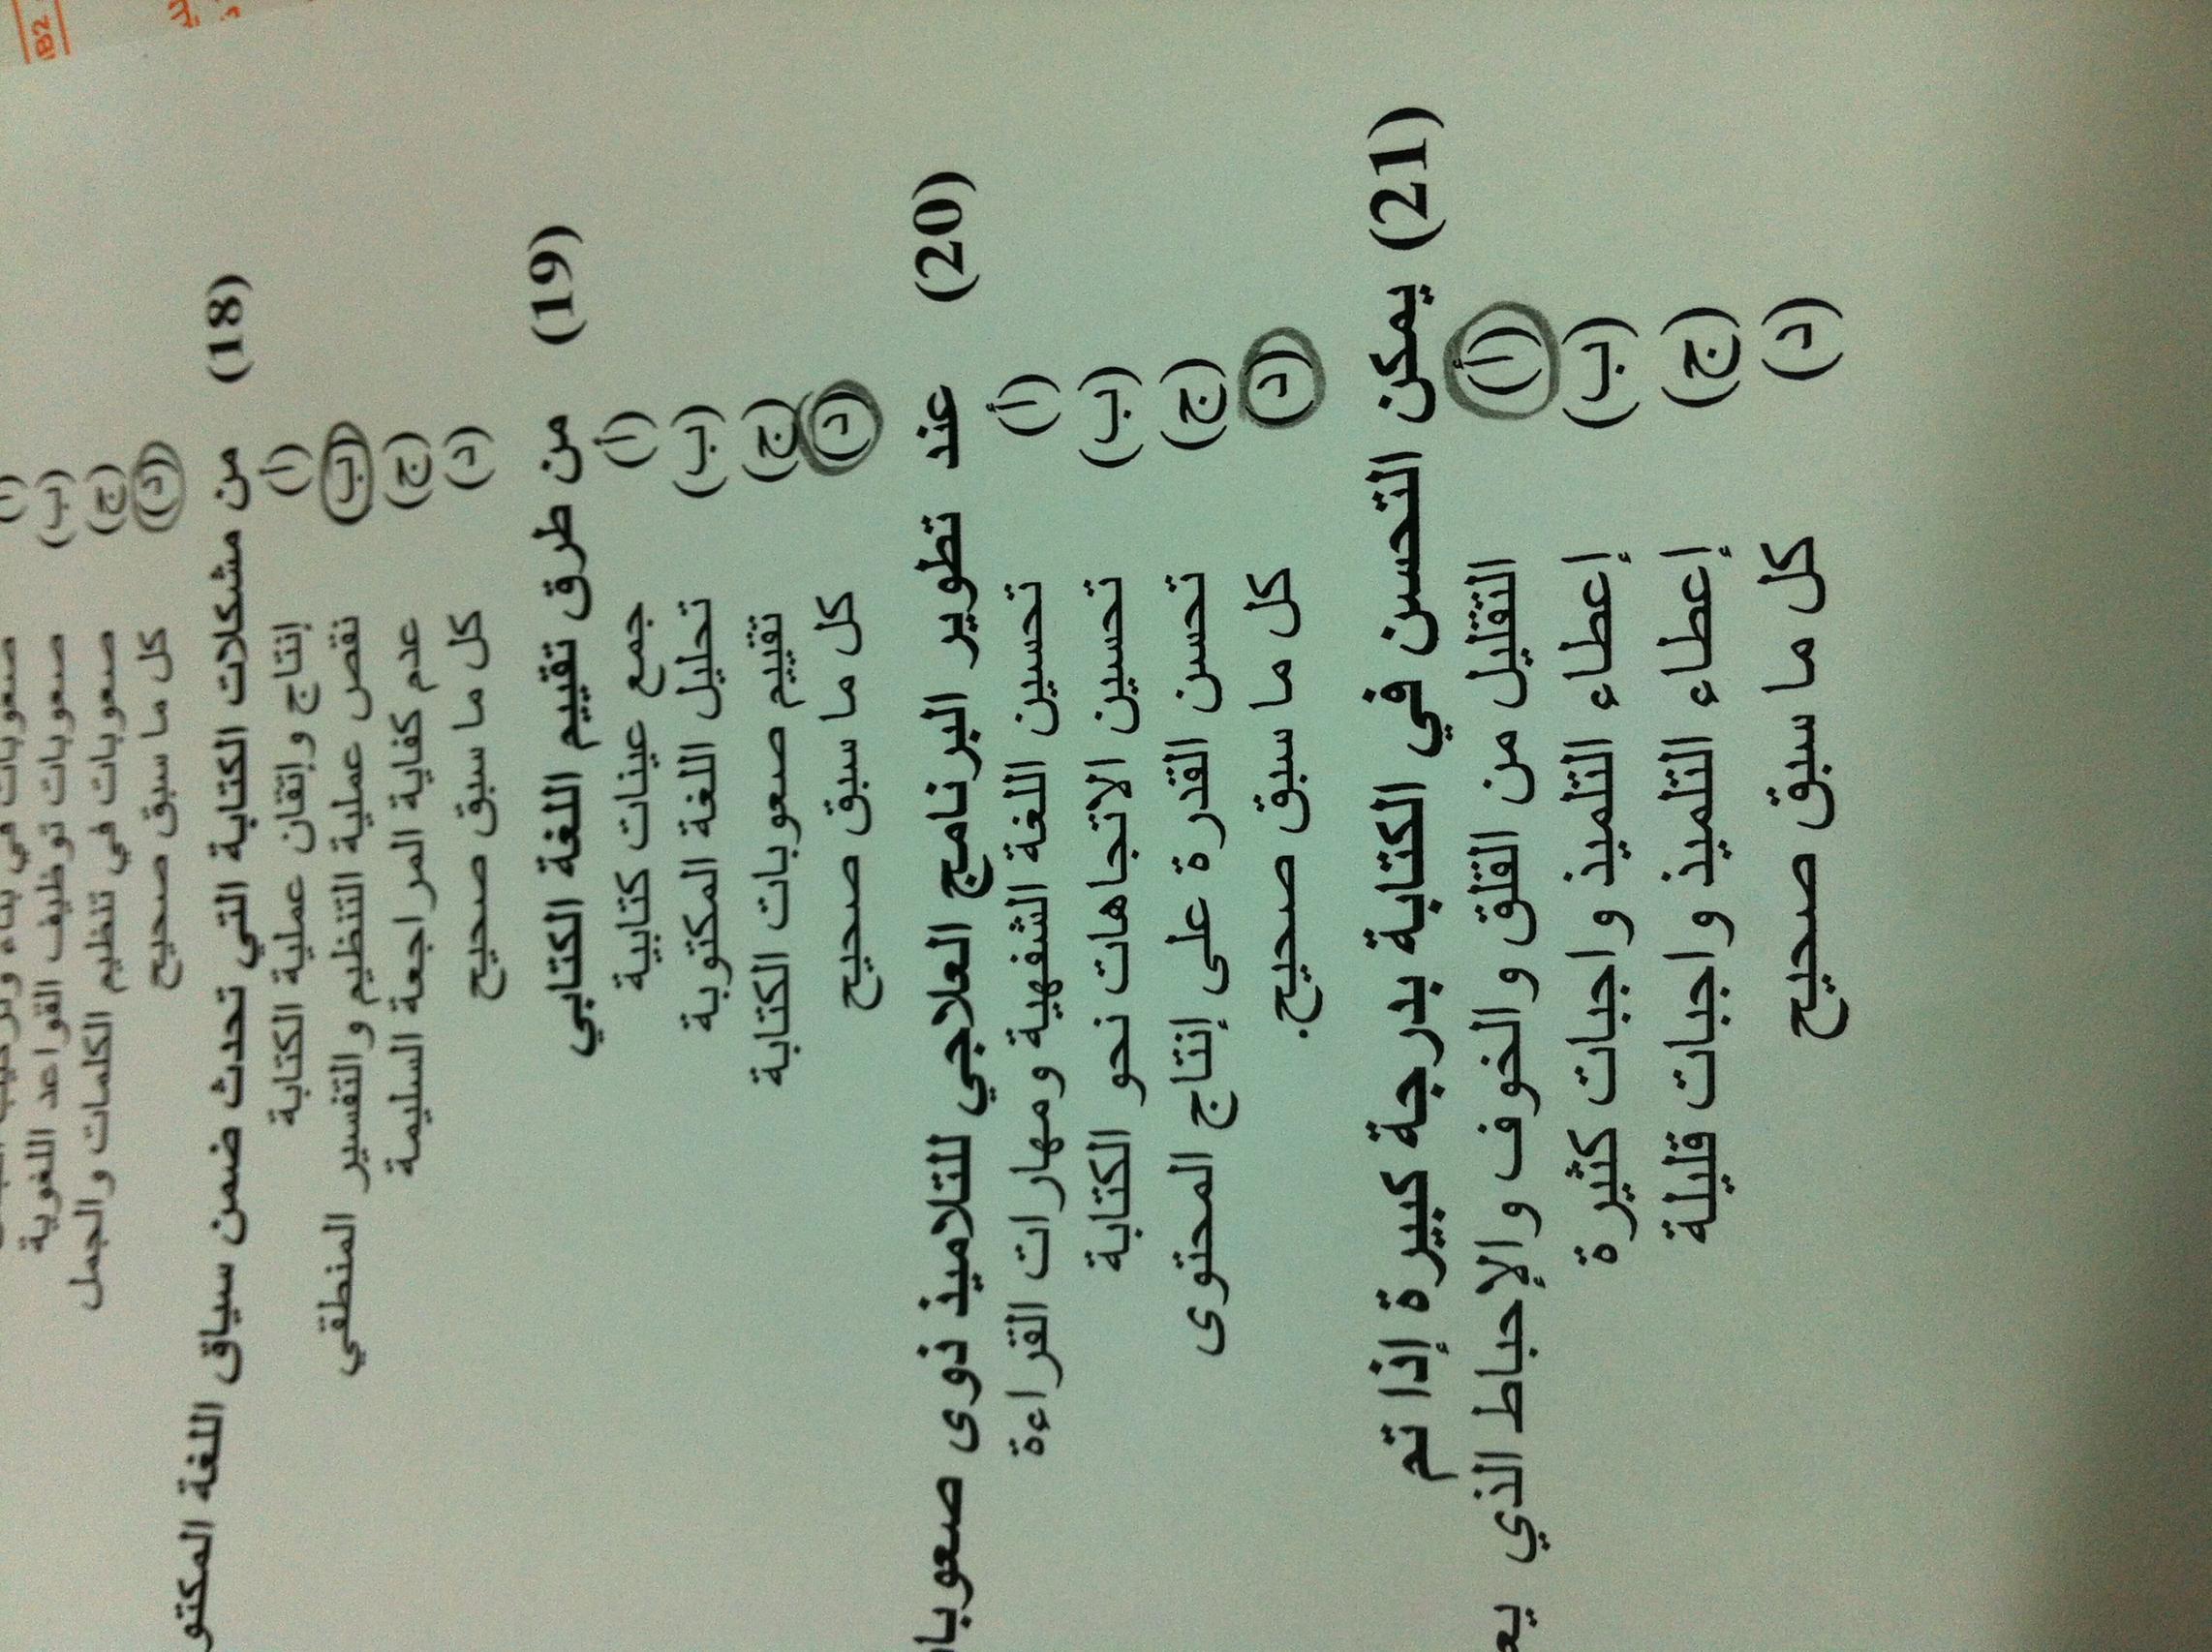 B2
(أ) صعوبات في بناء
(ب) صعوبات توظيف القواعد اللغوية
(ج) صعوبات في تنظيم الكلمات والجمل
(د) كل ما سبق صحيح
(18) من مشكلات الكتابة التي تحدث ضمن سياق اللغة المكتو
(أ) إنتاج وإتقان عملية الكتابة
(ب) نقص عملية التنظيم والتفسير المنطقي
(ج) عدم كفاية المراجعة السليمة
(د) كل ما سبق صحيح
(19) من طرق تقييم اللغة الكتابي
(أ) جمع عينات كتابية
(ب) تحليل اللغة المكتوبة
(ج) تقييم صعوبات الكتابة
(د) كل ما سبق صحيح
(20) عند تطوير البرنامج العلاجي للتلاميذ ذوى صعوبا
(أ) تحسين اللغة الشفهية ومهارات القراءة
(ب) تحسين الاتجاهات نحو الكتابة
(ج) تحسن القدرة على إنتاج المحتوى
(د) كل ما سبق صحيح.
(21) يمكن التحسن في الكتابة بدرجة كبيرة إذا تم
(أ) التقليل من القلق والخوف والإحباط الذي يع
(ب) إعطاء التلميذ واجبات كثيرة
(ج) إعطاء التلميذ واجبات قليلة
(د) كل ما سبق صحيح